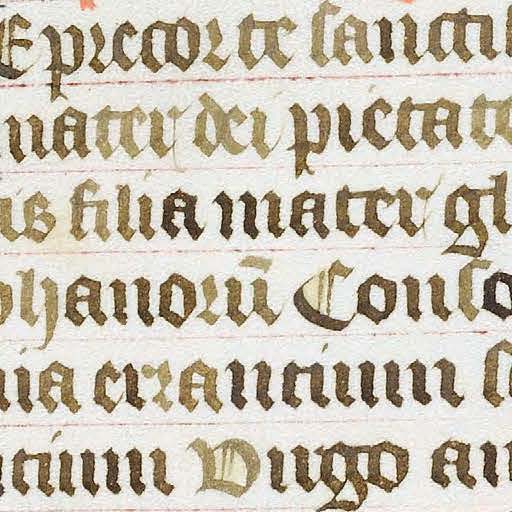 E precor te sancti
mater dei pietate
is filia mater gl
phanorū Conso
uia errantium s
ntium Virgo an